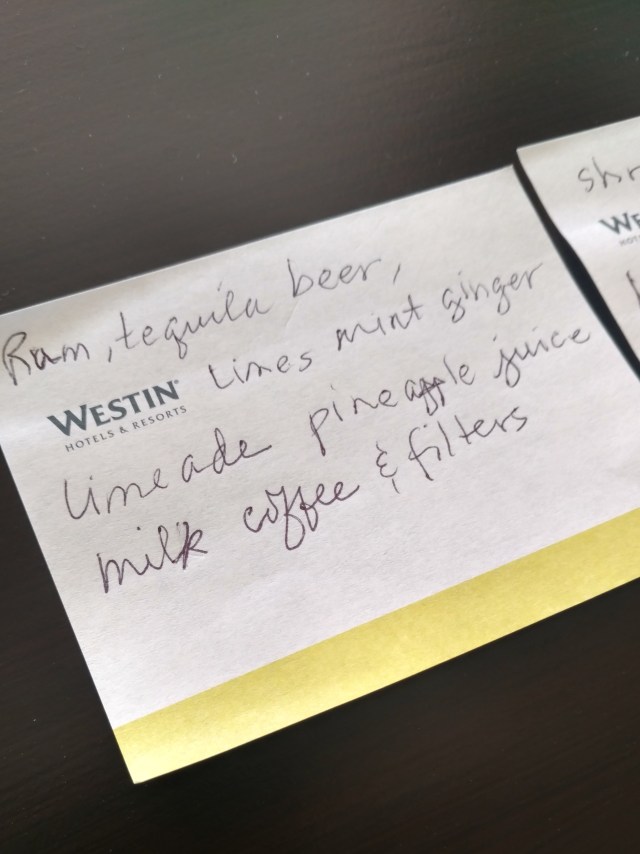 Rum, tequila beer,
WESTIN
HOTELS & RESORTS
Limes mint ginger
limeade pineapple juice
milk coffee & filters
shr
WE
HOT